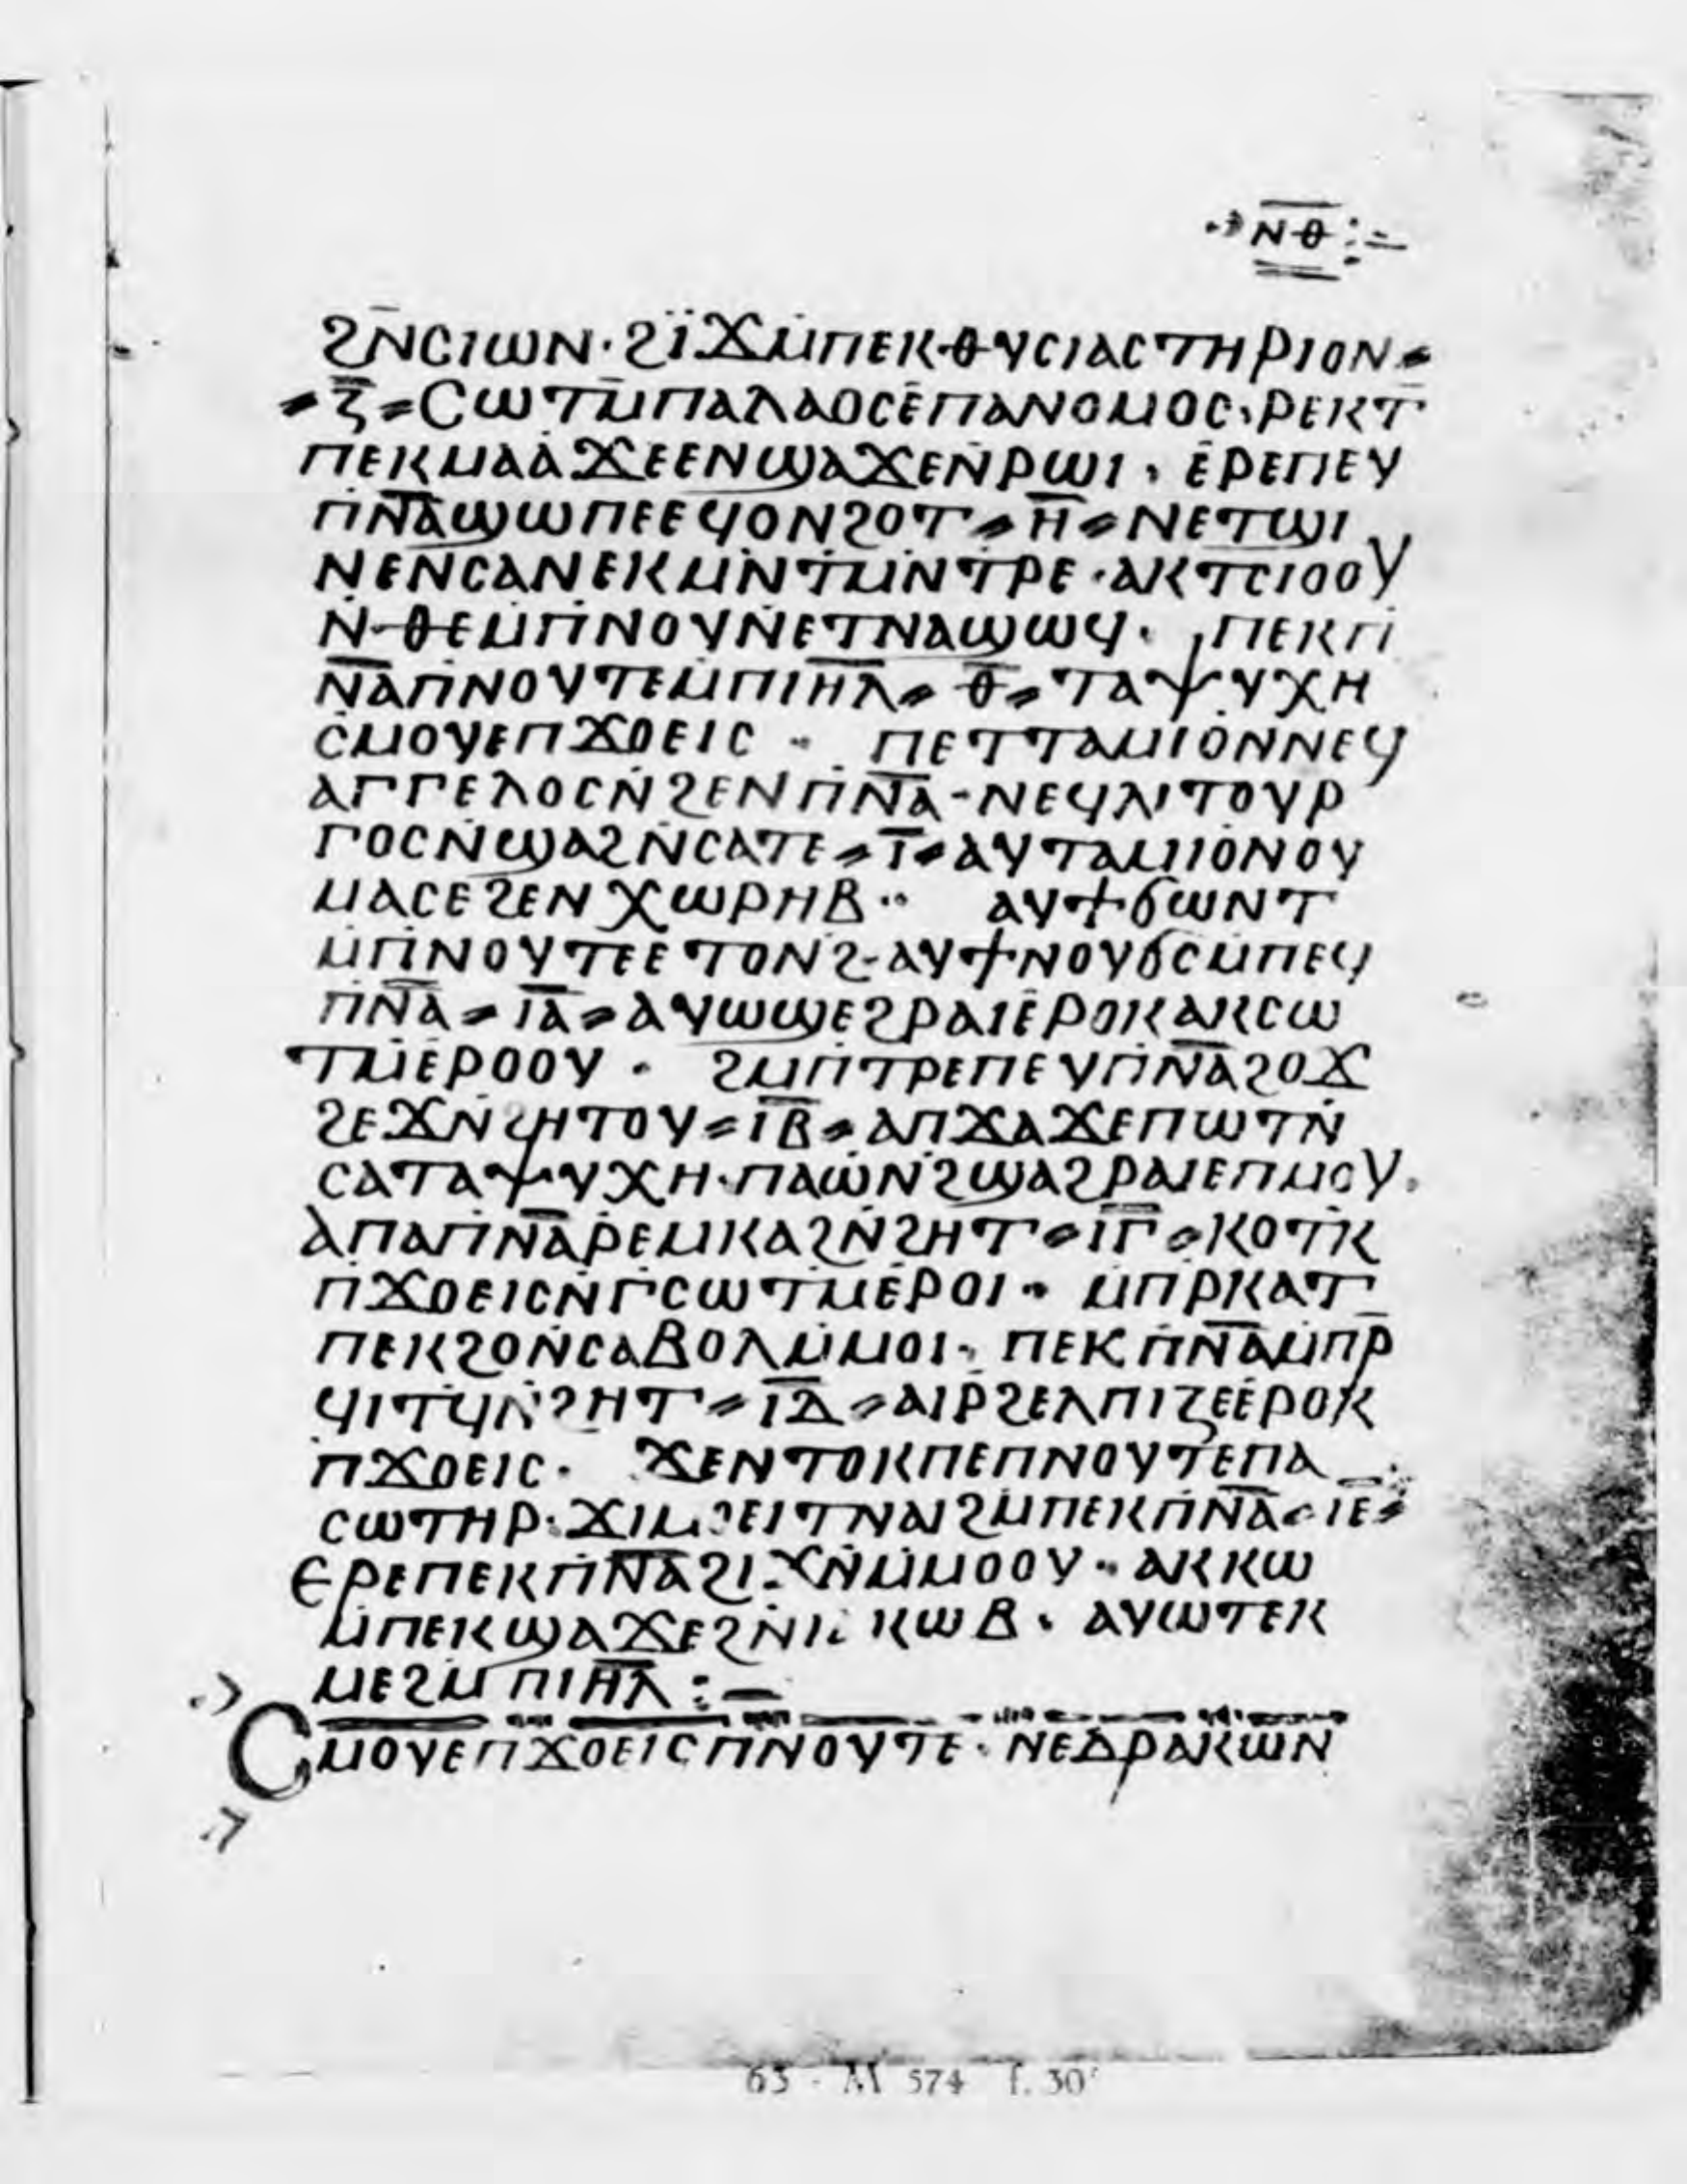 ·⳾ⲚⲐ:=
ϨⲚ̄ⲤⲒⲰⲚ· ϨⲒ̈ϪⲘ̇ⲠⲈⲔⲐⲨⲤⲒⲀⲤⲦⲎⲢⲒⲞⲚ⸗
⸗Ⲍ̄⸗ⲤⲰⲦⲘ̄ⲠⲀⲖⲀⲞⲤⲈ̇ⲠⲀⲚⲞⲘⲞⲤ·ⲢⲈⲔⲦ
ⲠⲈⲔⲘⲀⲀϪⲈⲈⲚϢⲀϪⲈⲚ̇ⲢⲰⲒ · Ⲉ̇ⲢⲈⲠⲈⲨ
ⲠⲚ̄Ⲁ̄ϢⲰⲠⲈⲈϤⲞⲚϨⲞⲦ⸗Ⲏ̄⸗ⲚⲈⲦϢⲒ
ⲚⲈⲚ̇ⲤⲀⲚⲈⲔⲘⲚ̇ⲦⲘ̇ⲚⲦⲢⲈ·ⲀⲔⲦⲤⲒⲞⲞⲨ
Ⲛ̇ⲐⲈⲘ̇ⲠⲚⲞⲨⲚ̇ⲈⲦⲚⲀϢⲰϤ· ⲠⲈⲔⲠ̇
Ⲛ̄Ⲁ̄ⲠⲚⲞⲨⲦⲈⲘ̇ⲠⲒⲎ̄Ⲗ̄⸗Ⲑ̄⸗ⲦⲀⲮⲨⲬⲎ
ⲤⲘⲞⲨⲈⲠϪⲞⲈⲒⲤ · ⲠⲈⲦⲦⲀⲘⲒⲞⲚ̇ⲚⲈϤ
ⲀⲄⲄⲈⲖⲞⲤⲚ̇ϨⲈⲚⲠ̇Ⲛ̄Ⲁ̄-ⲚⲈϤⲖⲒⲦⲞⲨⲢ
ⲄⲞⲤⲚ̇ϢⲀϨⲚ̇ⲤⲀⲦⲈ⸗Ⲓ̄⸗ⲀⲨⲦⲀⲘⲒⲞ̇ⲚⲞⲨ
ⲘⲀⲤⲈϨⲈⲚⲬⲰⲢⲎⲂ·· ⲀⲨϮϬⲰⲚⲦ
Ⲙ̇ⲠⲚⲞⲨⲦⲈⲈⲦⲞⲚϨ-ⲀⲨϮⲚⲞⲨϬⲤⲘ̇ⲠⲈϤ
ⲠⲚ̄Ⲁ̄⸗Ⲓ̄Ⲁ̄⸗ⲀⲨⲰϢⲈϨⲢⲀⲒⲈ̇ⲢⲞⲔⲀⲔⲤⲰ
ⲦⲘ̇Ⲉ̇ⲢⲞⲞⲨ · ϨⲘ̇ⲠⲦⲢⲈⲠⲈⲨⲠ̇Ⲛ̄Ⲁ̄ϨⲞϪ
ϨⲈϪⲚ̇ϨⲎⲦⲞⲨ⸗Ⲓ̄Ⲃ̄⸗ⲀⲠϪⲀϪⲈⲠⲰⲦⲚ̇
ⲤⲀⲦⲀⲮⲨⲬⲎ·ⲠⲀⲰⲚϨϢⲀϨⲢⲀⲒⲈⲠⲘⲞⲨ·
ⲀⲠⲀⲠⲚ̄Ⲁ̄Ⲣ̇ⲈⲘⲔⲀϨⲚ̇ϨⲎⲦ⸗Ⲓ̄Ⲅ̄⸗ⲔⲞⲦⲔ̇
ⲠϪⲞⲈⲒⲤⲚ̇ⲄⲤⲰⲦⲘⲈ̇ⲢⲞⲒ· ⲘⲠⲢⲔⲀⲦ
ⲠⲈⲔϨⲞⲚ̇ⲤⲀⲂⲞⲖⲘ̇ⲘⲞⲒ· ⲠⲈⲔⲠ̇Ⲛ̄Ⲁ̄Ⲙ̇ⲠⲢ
ϤⲒⲦϤⲚ̇ϨⲎⲦ⸗Ⲓ̄Ⲇ̄⸗ⲀⲒⲢϨⲈⲖⲠⲒⲌⲈⲈ̇ⲢⲞⲔ
ⲠϪⲞⲈⲒⲤ· ϪⲈⲚⲦⲞⲔⲠⲈⲠⲚⲞⲨⲦⲈⲠⲀ
ⲤⲰⲦⲎⲢ·ϪⲒⲘⲞⲈⲒⲦⲚⲀⲒϨⲘⲠⲈⲔⲠ̇Ⲛ̄Ⲁ̄⸗Ⲓ̄Ⲉ̄⸗
ⲈⲢⲈⲠⲈⲔⲠ̇Ⲛ̄Ⲁ̄ϨⲒϪⲚ̇Ⲙ̇ⲘⲞⲞⲨ· ⲀⲔⲔⲰ
Ⲙ̇ⲠⲈⲔϢⲀϪⲈϨⲚ̇ ⲔⲰⲂ· ⲀⲨⲰⲦⲈⲔ
ⲘⲈϨⲘ̇ⲠⲒⲎ̄Ⲗ̄:—
ⲤⲘⲞⲨⲈⲠϪⲞⲈⲒⲤⲠⲚⲞⲨⲦⲈ·ⲚⲈⲆⲢⲀⲔⲰⲚ
63 · M 574 f. 30ʳ